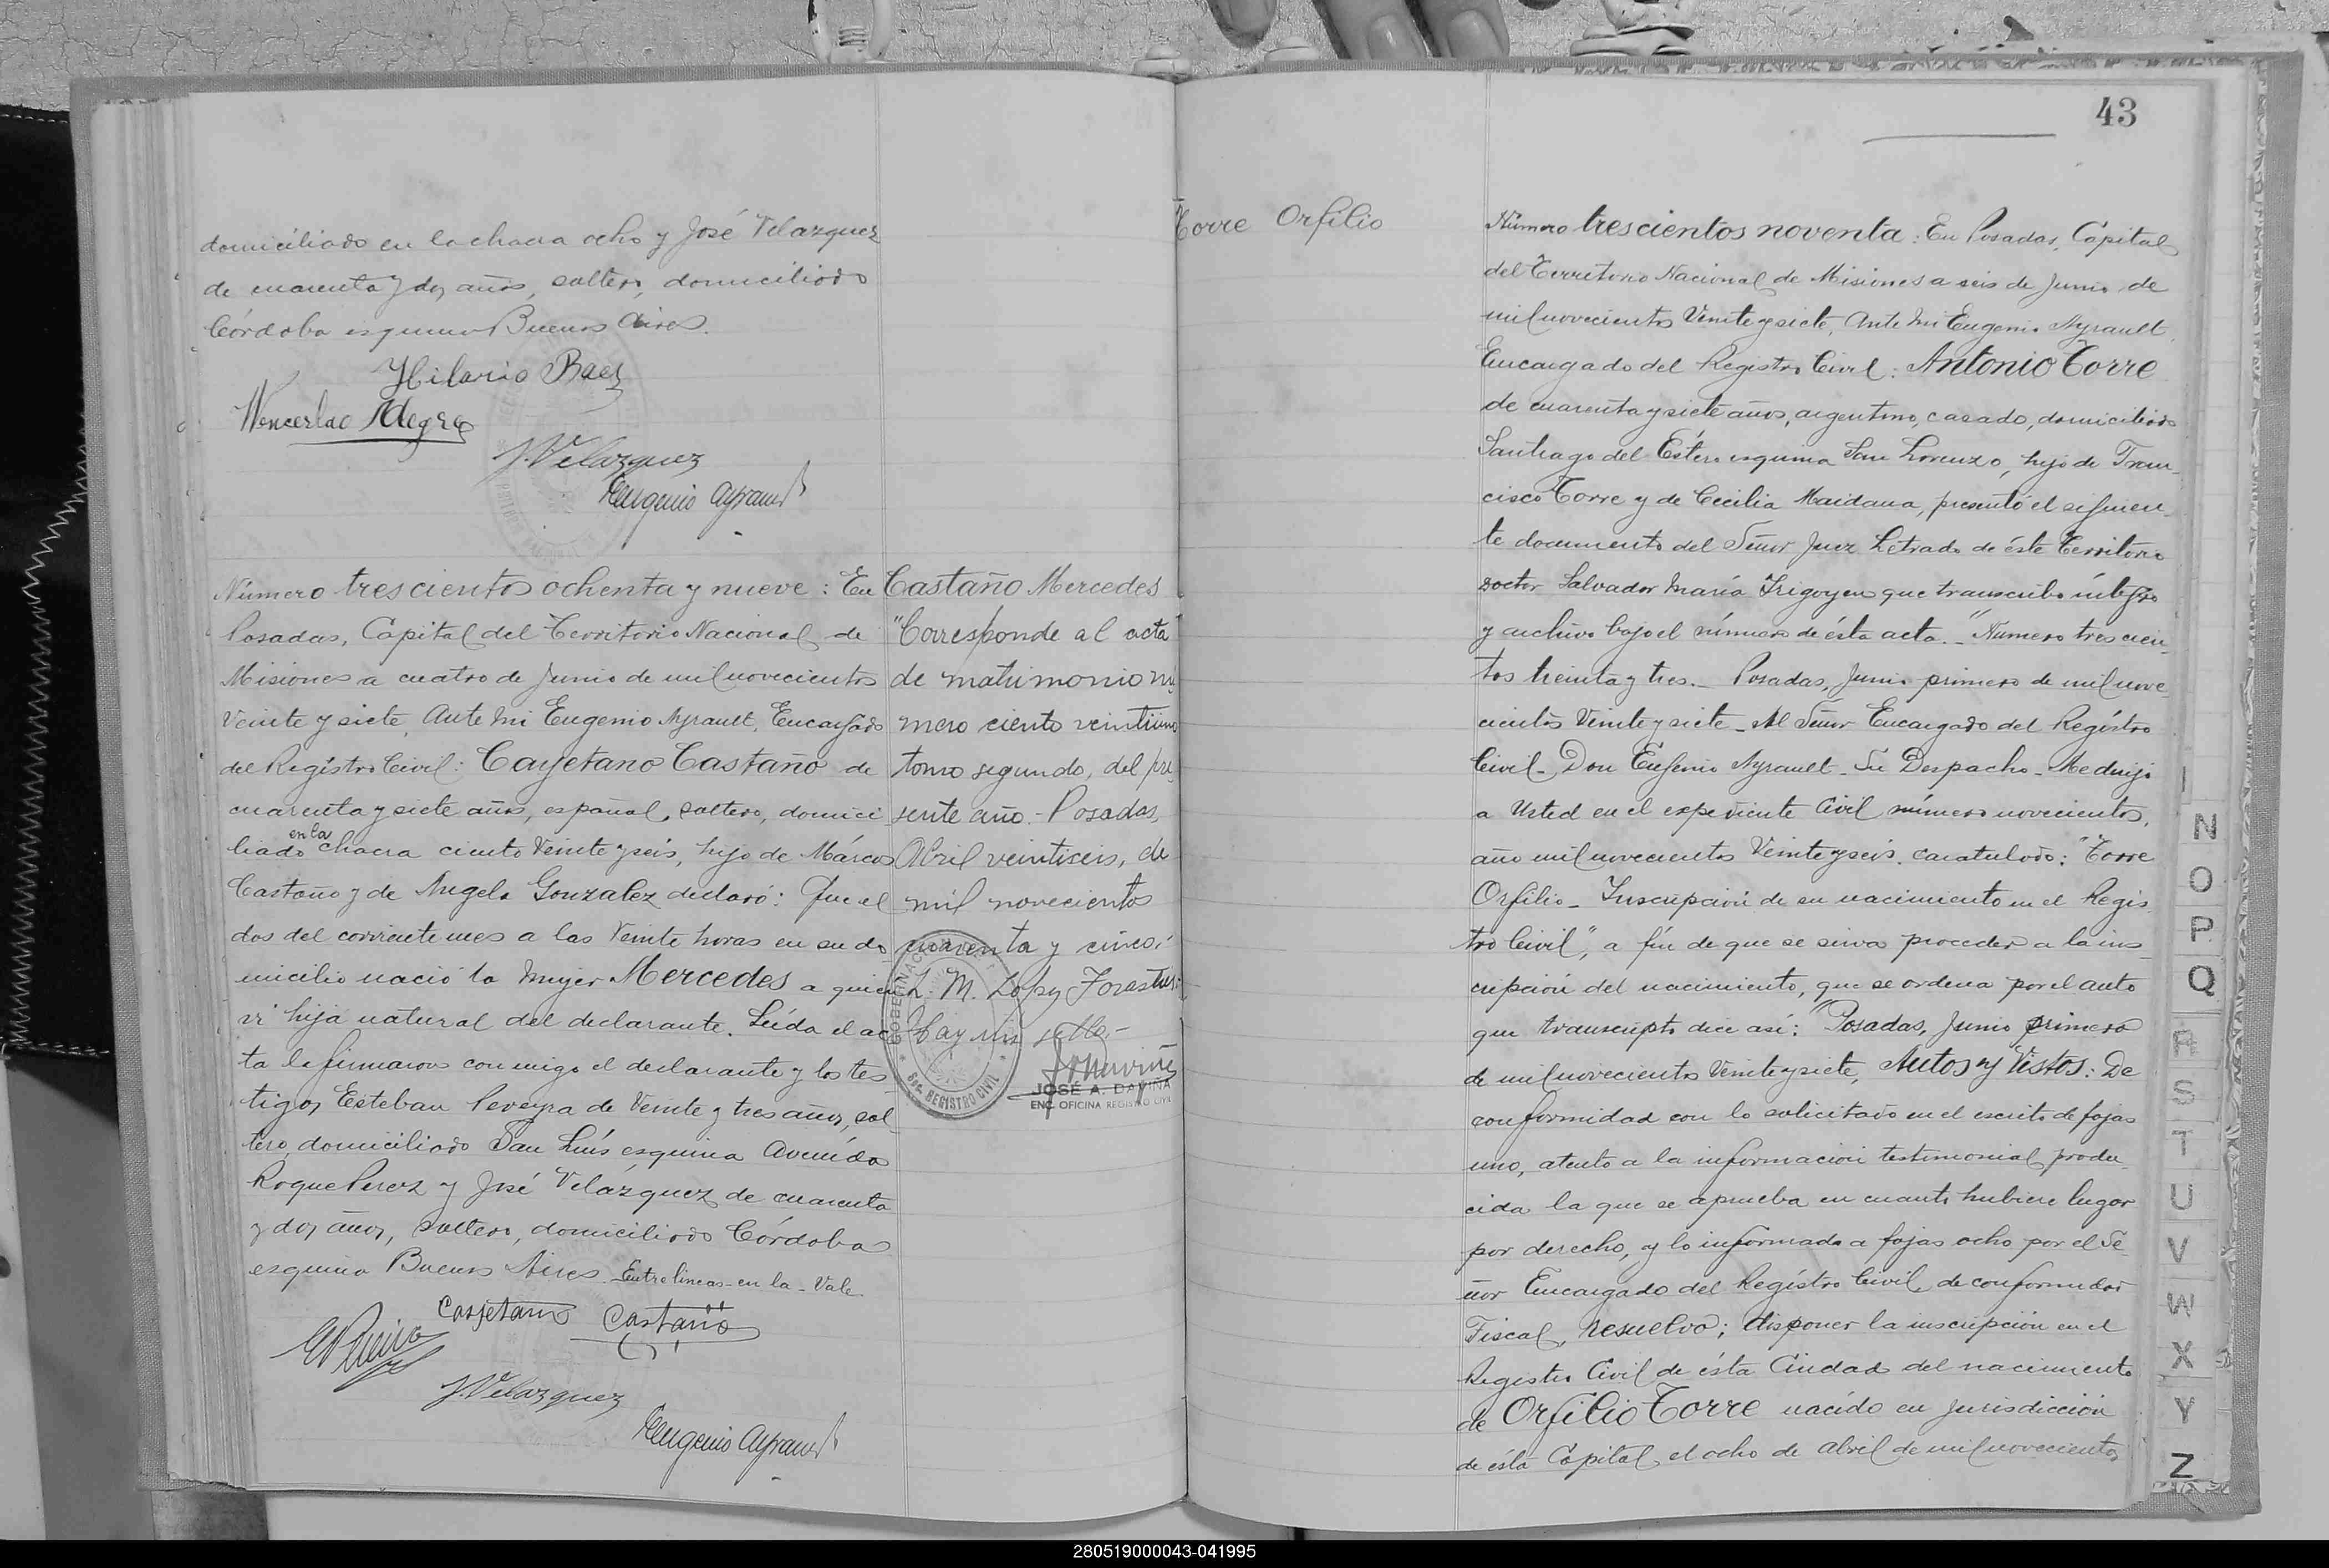 domiciliado en la chacra ocho y José Velazquez
de cuarenta y dos años, soltero, domiciliado
Córdoba esquina Buenos Aires.
Hilario Baez
Wenceslao Alegre
J. Velazquez
Eugenio Ayrault
Número trescientos ochenta y nueve: En
Posadas, Capital del Territorio Nacional de
Misiones a cuatro de Junio de mil novecientos
Veinte y siete, Ante mi Eugenio Ayrault, Encargado
del Registro Civil: Cayetano Castaño de
cuarenta y siete años, español, soltero, domici
liado en la chacra ciento Veinte y seis, hijo de Márcos
Castaño y de Angela Gonzalez declaró: Que el
dos del corriente mes a las Veinte horas en su do
micilio nació la mujer Mercedes a quien
vi hija natural del declarante. Leída el ac
ta la firmaron conmigo el declarante y los tes
tigos Esteban Pereyra de Veinte y tres años, sol
tero, domiciliado San Luís esquina Avenida
Roque Perez y José Velázquez de cuarenta
y dos años, soltero, domiciliado Córdoba
esquina Buenos Aires. Entre lineas - en la - Vale
Cayetano Castaño
J. Velazquez
Eugenio Ayrault
Castaño Mercedes
"Corresponde al acta
de matrimonio nú
mero ciento veintiuno
tomo segundo, del pre
sente año. - Posadas,
Abril veintiseis, de
mil novecientos
cuarenta y cinco.
L. M. Lopez Forastier
Hay un sello.-
JOSÉ A. DAVIÑA
ENC. OFICINA REGISTRO CIVIL
43
Torre Orfilio
Número trescientos noventa: En Posadas, Capital
del Territorio Nacional de Misiones a seis de Junio de
mil novecientos Veinte y siete, Ante mi Eugenio Ayrault,
Encargado del Registro Civil: Antonio Torre
de cuarenta y siete años, argentino, casado, domiciliado
Santiago del Estero esquina San Lorenzo, hijo de Fran
cisco Torre y de Cecilia Maidana, presentó el siguien
te documento del Señor Juez Letrado de éste Territorio
Doctor Salvador María Irigoyen que transcribo integro
y archivo bajo el número de ésta acta. - "Numero trescien
tos treinta y tres. - Posadas, Junio primero de mil nove
cientos Veinte y siete - Al Señor Encargado del Registro
Civil - Don Eugenio Ayrault - Su Despacho - Me dirijo
a Usted en el expediente Civil número novecientos,
año mil novecientos Veinte y seis, caratulado: "Torre
Orfilio - Inscripción de su nacimiento en el Regis
tro Civil", a fin de que se sirva proceder a la ins
cripción del nacimiento, que se ordena por el auto
que transcripto dice así: "Posadas, Junio primero
de mil novecientos Veinte y siete, Autos y Vistos: De
conformidad con lo solicitado en el escrito de fojas
uno, atento a la información testimonial produ
cida la que se aprueba en cuanto hubiere lugar
por derecho, y lo informado a fojas ocho por el Se
ñor Encargado del Registro Civil, de conformidad
Fiscal, Resuelvo; disponer la inscripción en el
Registro Civil de ésta Ciudad del nacimiento
de Orfilio Torre nacido en jurisdicción
de ésta Capital el ocho de abril de mil novecientos
N
O
P
Q
R
S
T
U
V
W
X
Y
Z
280519000043-041995